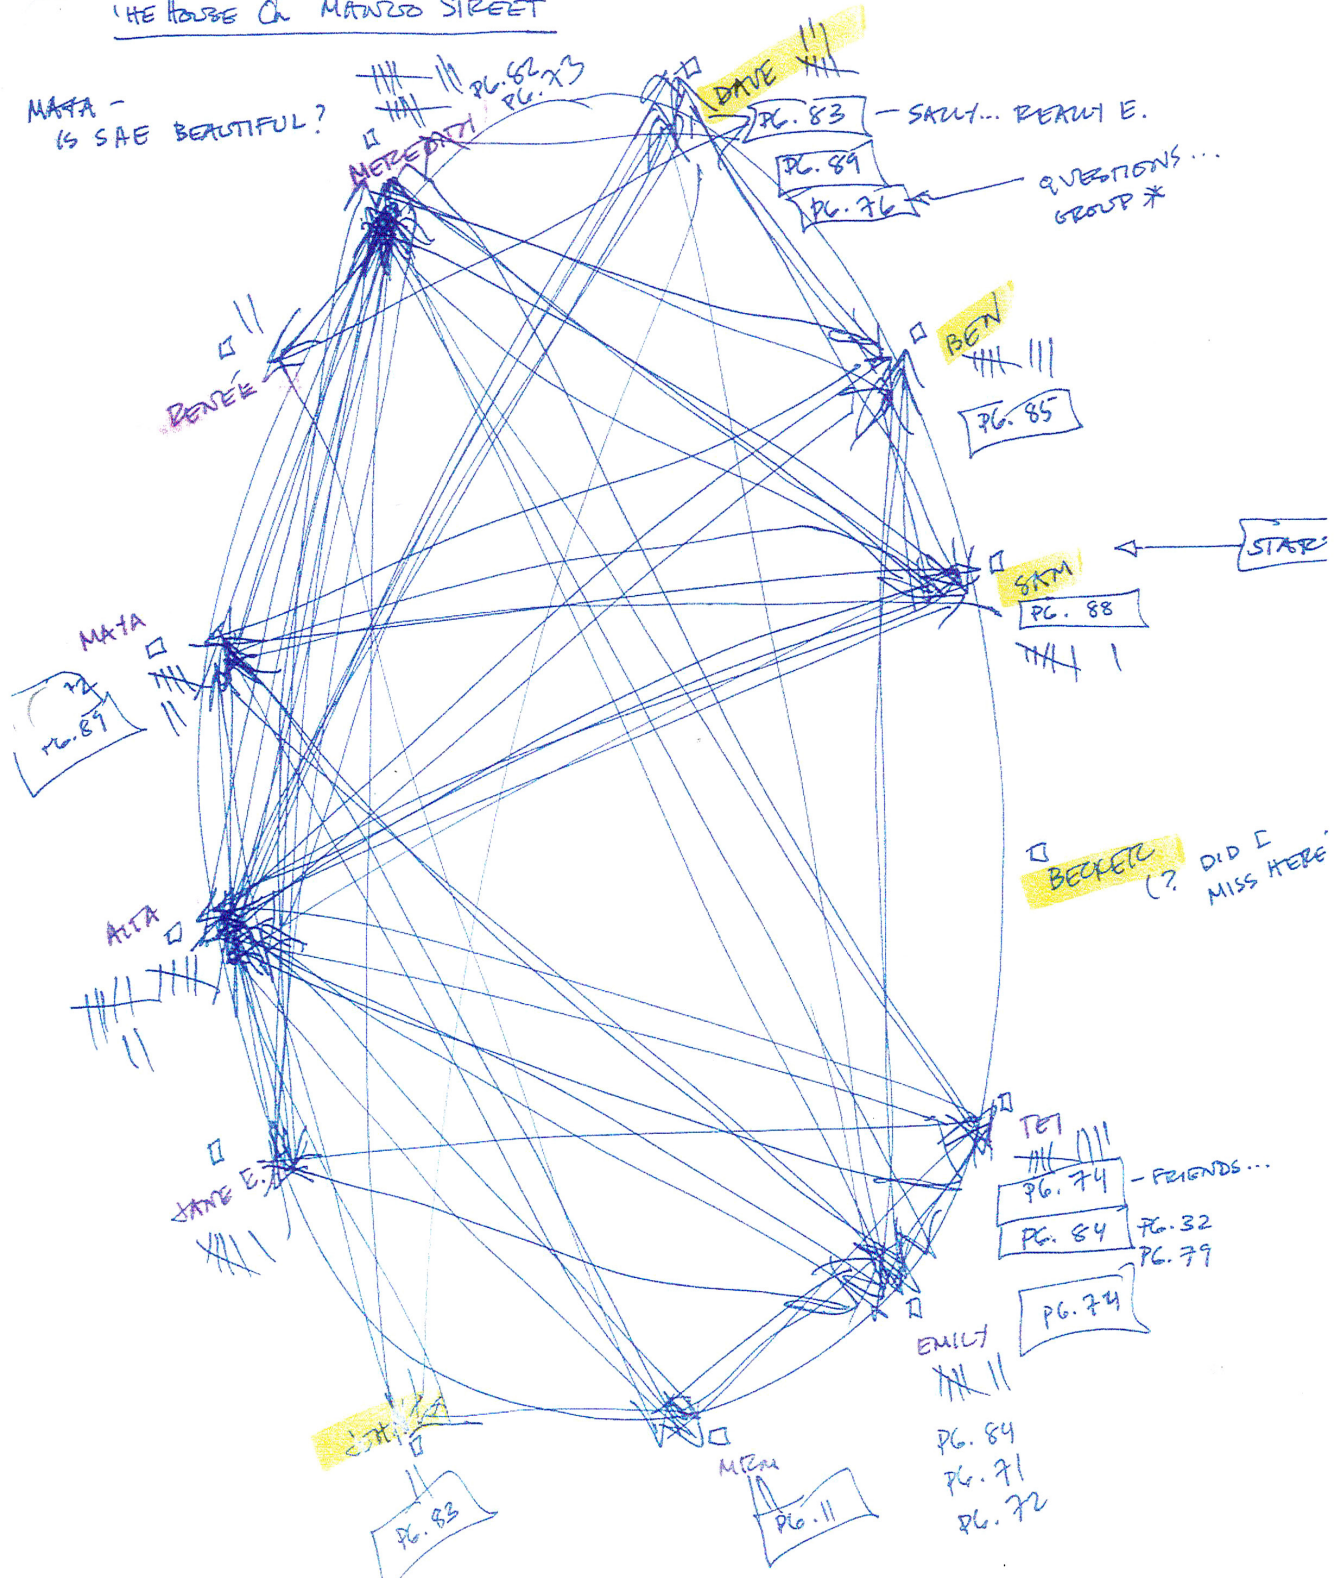 THE HOUSE ON MANGO STREET
MAYA -
IS SHE BEAUTIFUL?
PG. 82
PG. 73
MEREDITH
DAVE
PG. 83 - SALLY... REALLY E.
PG. 89
PG. 76
QUESTIONS...
GROUP *
RENÉE
BEN
PG. 85
START
SAM
PG. 88
MAYA
72
PG. 89
BECKETT
(? DID I
MISS HERE?
ALTA
TET
PG. 74 - FRIENDS...
PG. 84
PG. 32
PG. 79
PG. 74
JANE E.
EMILY
PG. 84
PG. 71
PG. 72
PG. 83
MIRM
PG. 11